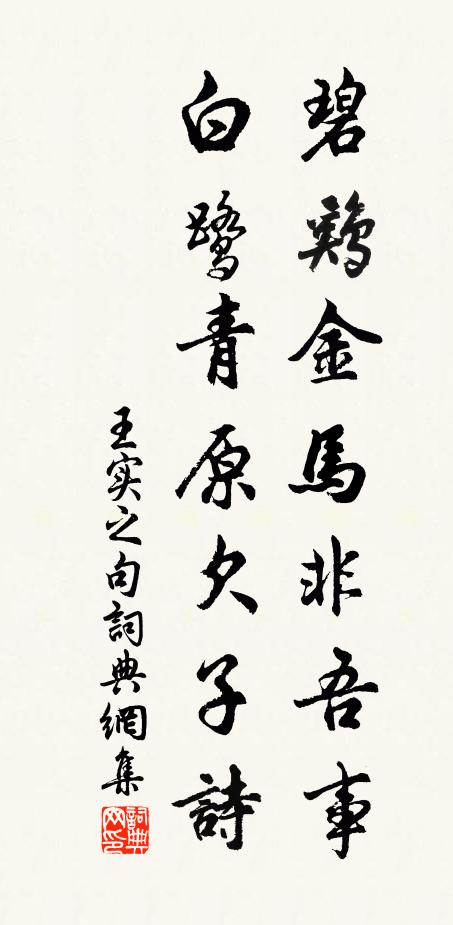 碧鷄金馬非吾事
白鹭青原欠子詩
王实之句詞典網集
詞典网印